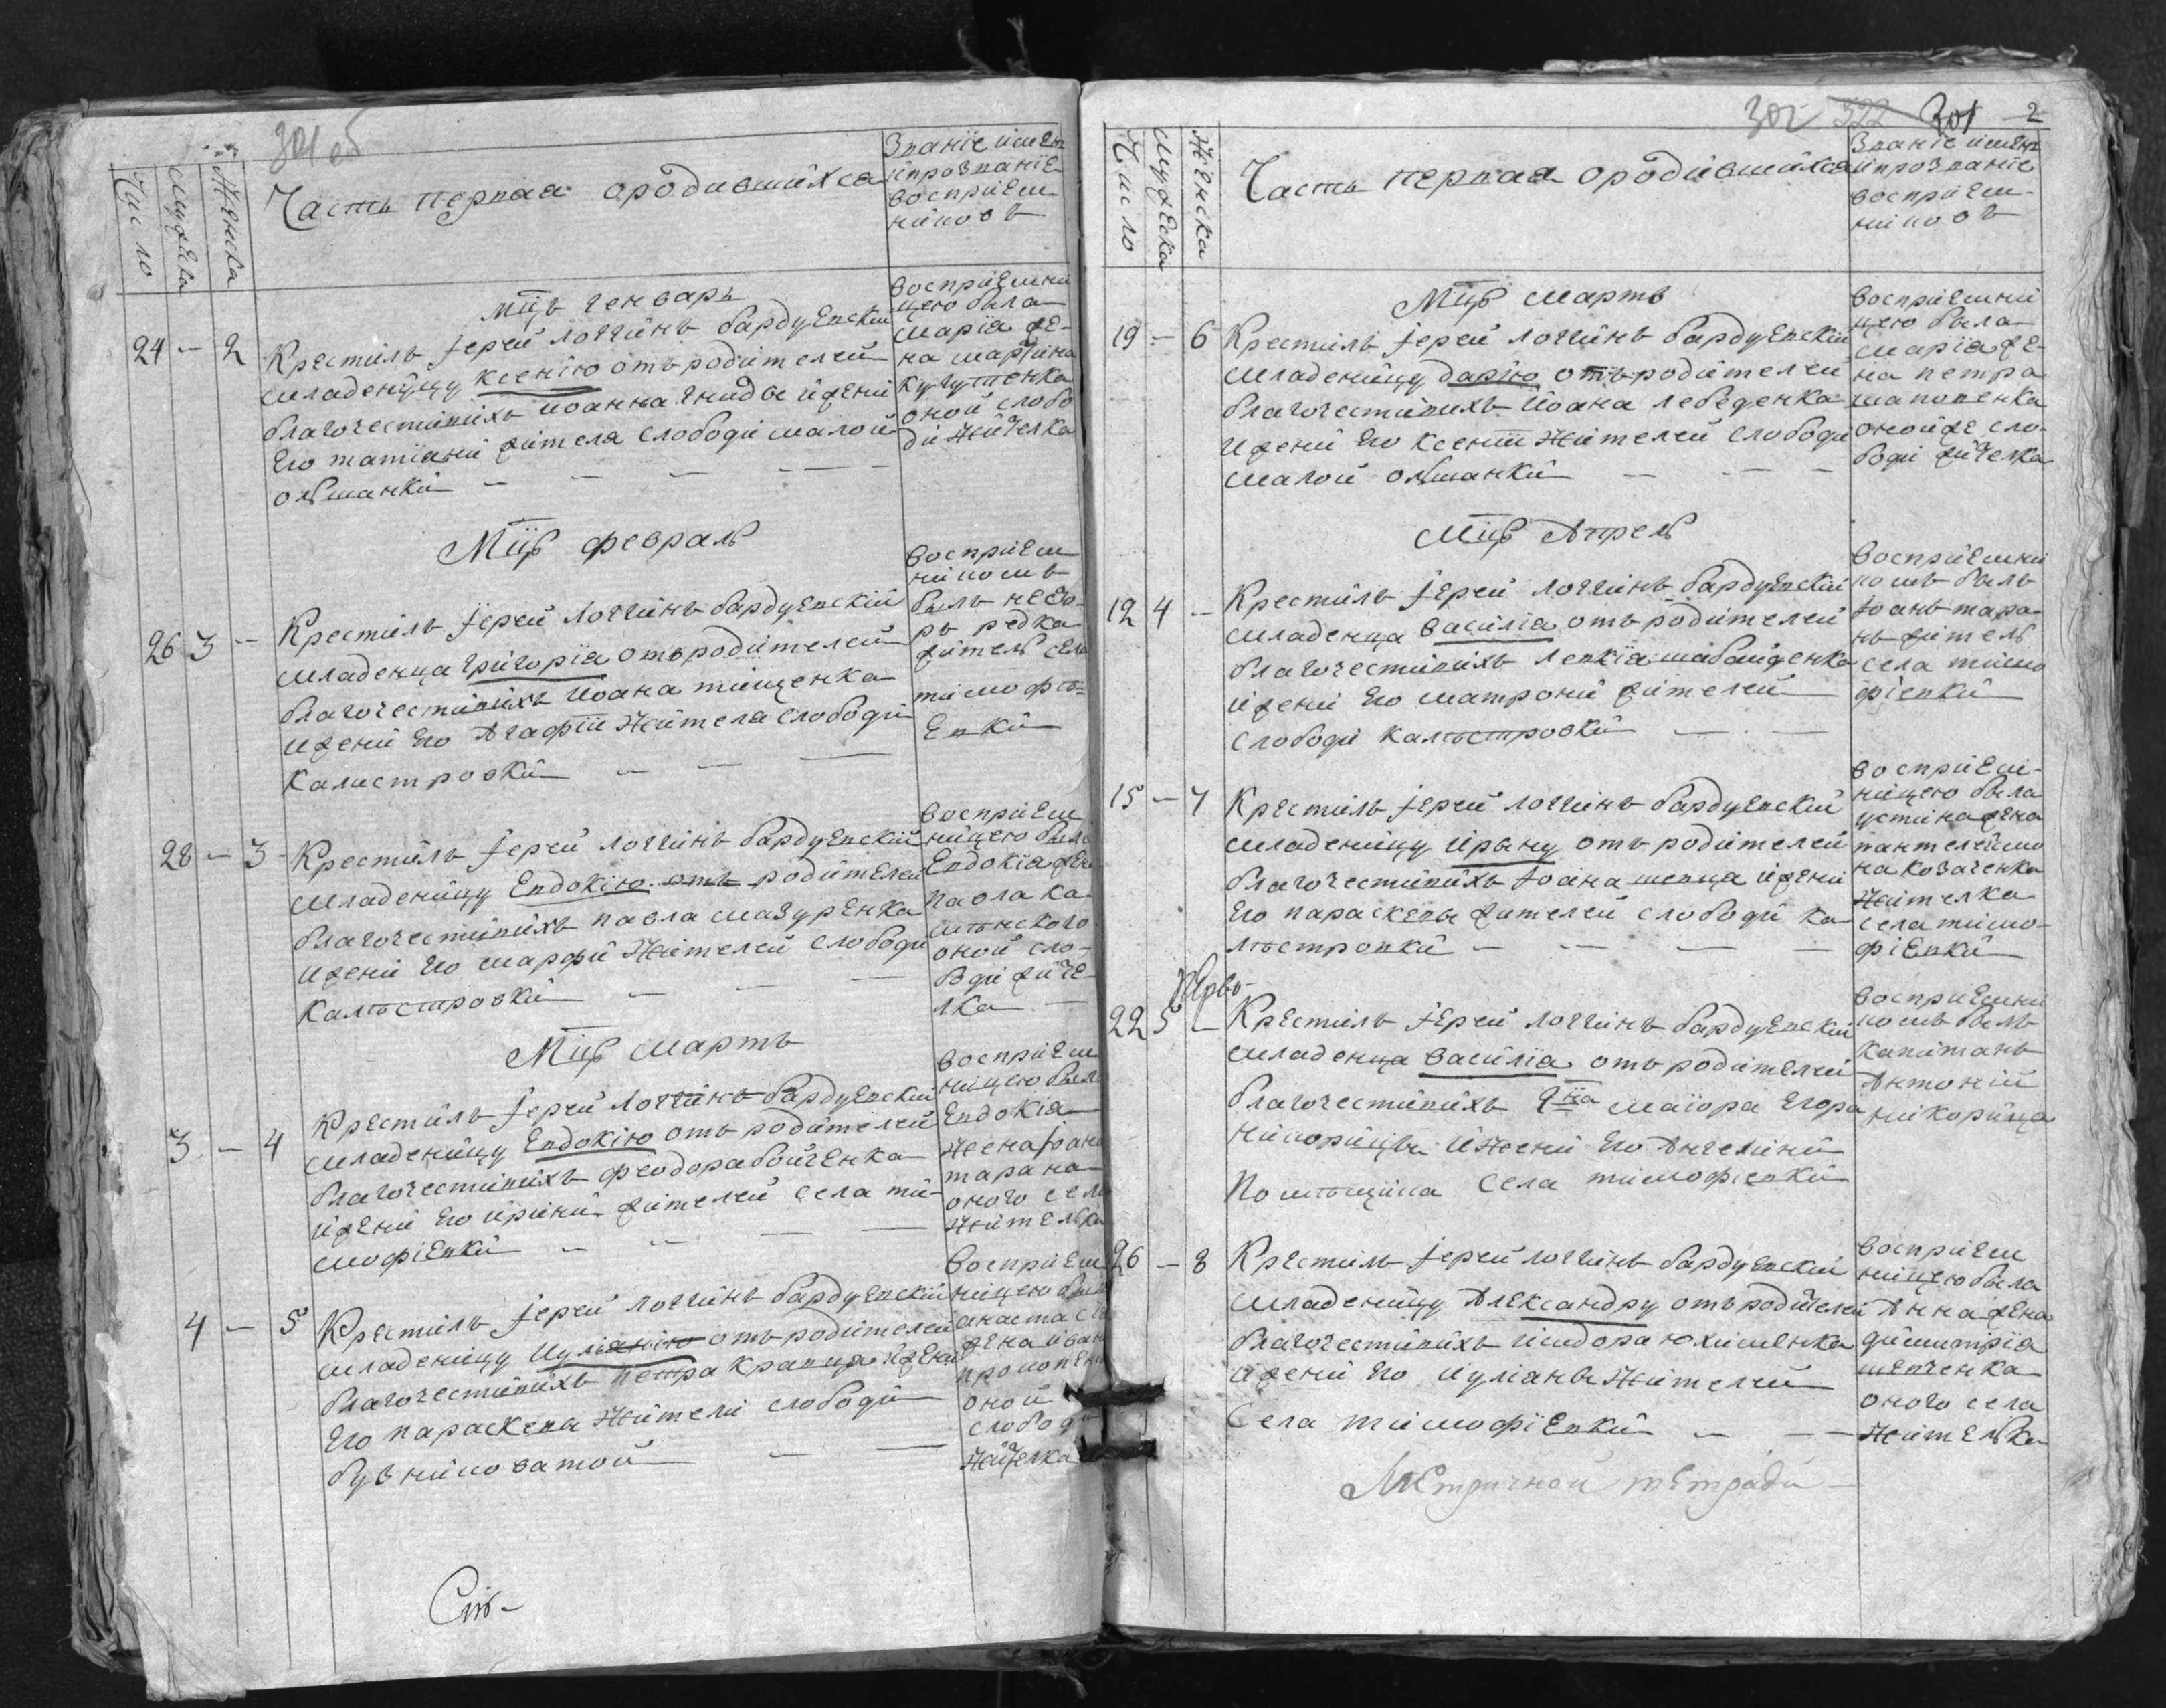 301 об
Число
Мужеска
Женска
Часть первая ородившихся
Званіе иимен
ипрозваніе
восприем
никовъ
Мцъ генварь
24 - 2
Крестилъ іерей Логгинъ бардуевский
младеницу ксенію отъ родителей
благочестивихъ иоанна гнидъ ижени
Его татіани жителя слободи малой
олшанки
восприемни
цею была
марія же-
на мартина
оной слобо
ди жителка
Мцъ февраль
26 3 -
Крестилъ іерей Логгинъ бардуевскій
младенца григорія отъ родителей
благочестивихъ иоана тищенка
ижени Его Агафіи жителя слободи
Калистровки
восприем
никомъ
былъ
редка
жител села
тимофѣ-
Евки
28 - 3
Крестилъ іерей Логгинъ бардуевский
младеницу Евдокію отъ родителей
благочестивихъ павла мазуренка
ижени Его марфи жителей слободи
Калѣстровки
восприем
ницею была
Евдокія жен
павла ка-
оной сло-
води жите-
лка
Мцъ мартъ
3 - 4
Крестилъ іерей Логгинъ бардуевский
младеницу Евдокію отъ родителей
благочестивихъ феодора бойченка
ижени Его ирини жителей села ти-
мофіевки
восприем
ницею была
Евдокія
жена іоана
тарана
оного села
жителка
4 - 5
Крестилъ іерей Логгинъ бардуевский
младеницу Иуліанію отъ родителей
благочестивихъ петра кравца ижени
Его параскевы жители слободи
бузниковатой
восприем
ницею была
анастасія
жена иван
прокопен
оной
слободи
жителка
Сію-
302 322 301 2
Число
Мужеска
Женска
Часть первая ородившихся
Званіе иимен
ипрозваніе
восприем-
никовъ
Мцъ мартъ
19 - 6
Крестилъ іерей Логгинъ бардуевский
младеницу дарію отъ родителей
благочестивихъ Иоана лебеденка
ижени Его ксении жителей слободи
малой олшанки
восприемни
цею была
марія же-
на петра
шаповенка
оной же сло-
води жителка
Мцъ Апрель
12 4 -
Крестилъ іерей Логгинъ бардуевский
младенца василія отъ родителей
благочестивихъ левкія шабайденка
ижени Его матрони жителей
слободи калѣстровки
восприемни
комъ былъ
іоанъ тара-
нъ жител
села тимо
фіевки
15 - 7
Крестилъ іерей Логгинъ бардуевский
младеницу ирыну отъ родителей
благочестивихъ іоана шевца ижени
Его параскевы жителей слободи ка-
лѣстровки
восприем-
ницею была
устина жена
пантелеймо
на козаченка
жителка
села тимо-
фіевки
22 5 -
Крестилъ іерей Логгинъ бардуевский
младенца василія отъ родителей
благочестивихъ Гдна маіора Егора
никорици иЖени Его Ангелини
помѣщика села тимофіевки
восприемни
комъ былъ
капитанъ
Антоній
никорица
26 - 8
Крестилъ іерей логгинъ бардуевский
младеницу Александру отъ родителей
благочестивихъ исидора юхименка
ижени Его иулианы жителей
Села тимофіевки
восприем
ницею была
Анна жена
димитрія
шевченка
оного села
жителка
Метричной тетради